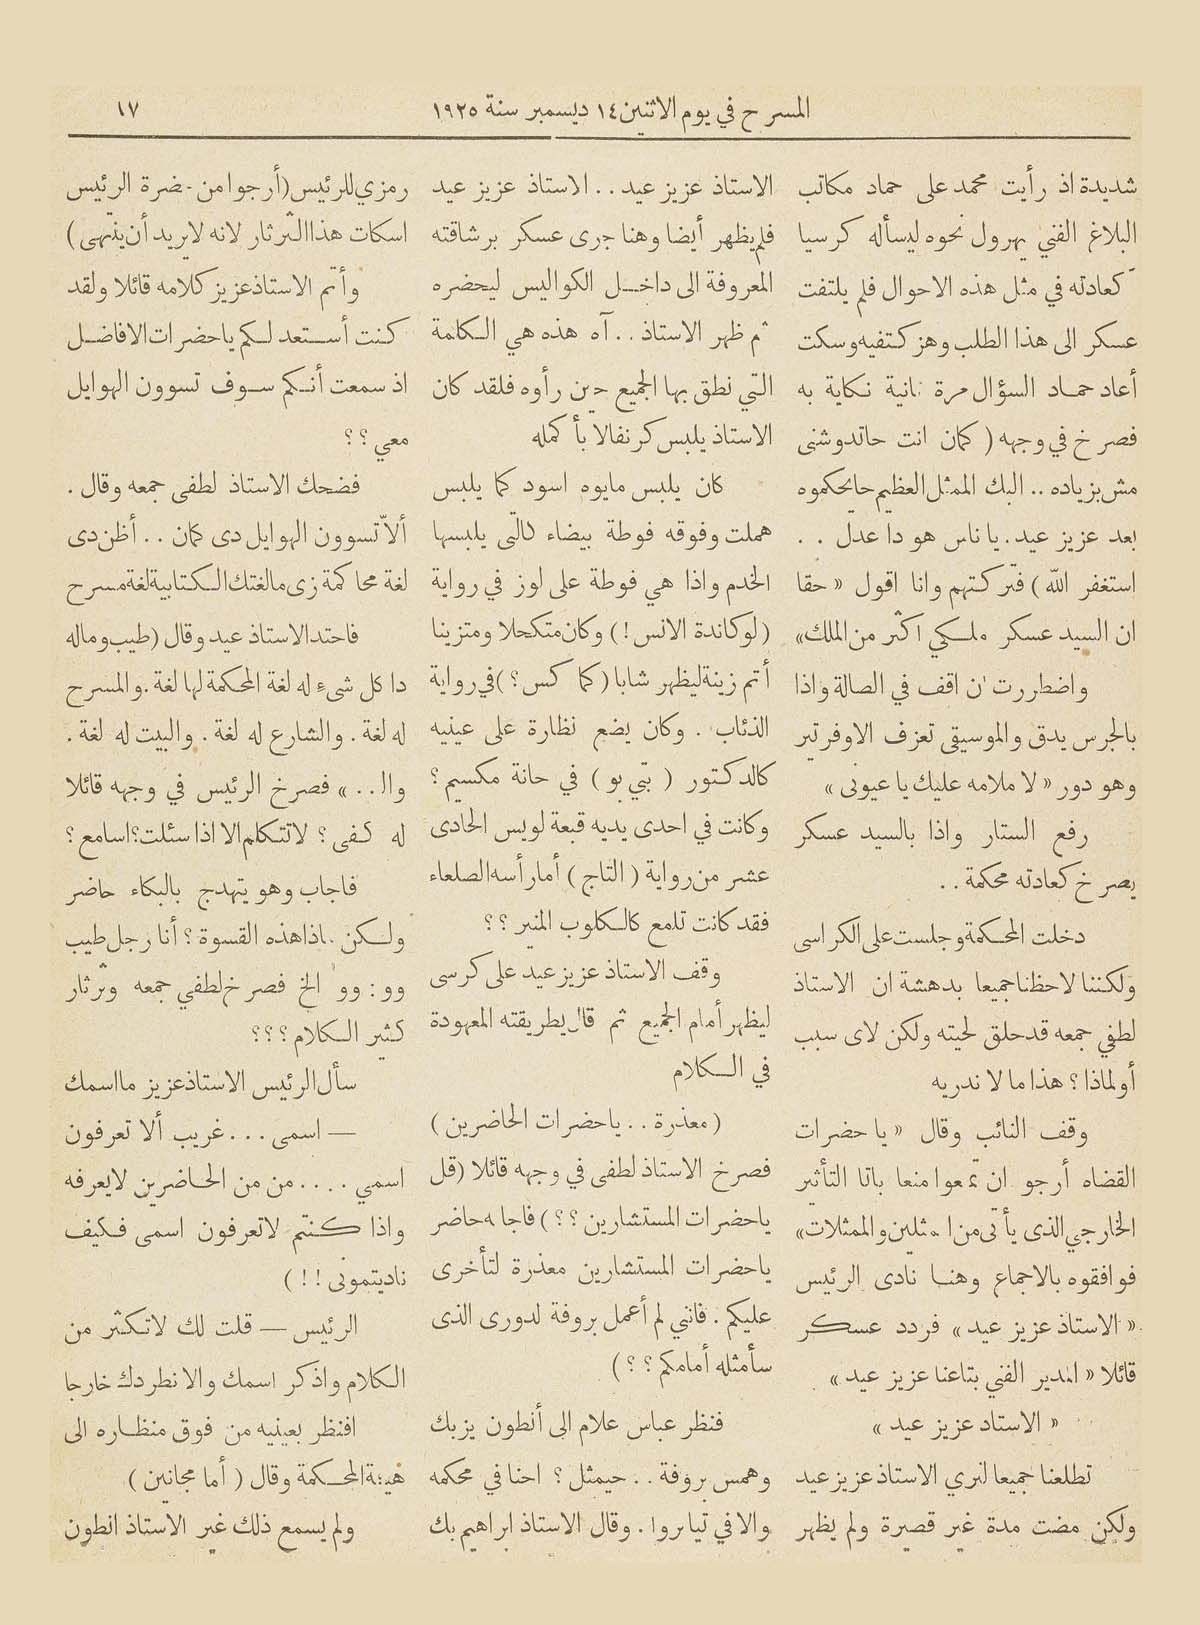 المسرح في يوم الاثنين ١٤ ديسمبر سنة ١٩٢٥
١٧
شديدة اذ رأيت محمد على حماد مكاتب
البلاغ الفني يهرول نحوه ليسأله كرسيا
كعادته في مثل هذه الاحوال فلم يلتفت
عسكر الى هذا الطلب وهز كتفيه وسكت
أعاد حماد السؤال مرة ثانية نكاية به
فصرخ في وجهه ( كمان انت حاتدوشنى
مش بزياده .. البك الممثل العظيم حايحكموه
بعد عزيز عيد . يا ناس هو دا عدل . .
استغفر الله ) فتركتهم وانا اقول « حقا
ان السيد عسكر ملكي اكثر من الملك »
واضطررت ان اقف في الصالة واذا
بالجرس يدق والموسيقى تعزف الاوفرتير
وهو دور « لا ملامه عليك يا عيونى »
رفع الستار واذا بالسيد عسكر
يصرخ كعادته محكمة . .
دخلت المحكمة وجلست على الكراسى
ولكننا لاحظنا جميعا بدهشة ان الاستاذ
لطفي جمعه قد حلق لحيته ولكن لاى سبب
أو لماذا ؟ هذا ما لا ندريه
وقف النائب وقال « يا حضرات
القضاه أرجو ان تمعوا منعا باتا التأثير
الخارجي الذى يأتى من الممثلين والممثلات »
فوافقوه بالاجماع وهنا نادى الرئيس
« الاستاذ عزيز عيد » فردد عسكر
قائلا « المدير الفني بتاعنا عزيز عيد »
« الاستاد عزيز عيد »
تطلعنا جميعا لنري الاستاذ عزيز عيد
ولكن مضت مدة غير قصيرة ولم يظهر
الاستاذ عزيز عيد . . الاستاذ عزيز عيد
فلم يظهر أيضا وهنا جرى عسكر برشاقته
المعروفة الى داخل الكواليس ليحضره
ثم ظهر الاستاذ . . آه هذه هي الكلمة
التي نطق بها الجميع حين رأوه فلقد كان
الاستاذ يلبس كرنفالا بأكمله
كان يلبس مايوه اسود كما يلبس
هملت وفوقه فوطة بيضاء كالتى يلبسها
الخدم واذا هي فوطة على لوز في رواية
( لوكاندة الانس ! ) وكان متكحلا ومتزينا
أتم زينة ليظهر شابا ( كما كس ؟ ) في رواية
الذئاب . وكان يضع نظارة على عينيه
كالدكتور ( تبي بو ) في حانة مكسيم ؟
وكانت في احدى يديه قبعة لويس الحادى
عشر من رواية ( التاج ) أما رأسه الصلعاء
فقد كانت تلمع كالكلوب المنير ؟ ؟
وقف الاستاذ عزيز عيد على كرسى
ليظهر أمام الجميع ثم قال بطريقته المعهودة
في الكلام
( معذرة . . يا حضرات الحاضرين )
فصرخ الاستاذ لطفى في وجهه قائلا ( قل
يا حضرات المستشارين ؟ ؟ ) فاجابه حاضر
يا حضرات المستشارين معذرة لتأخرى
عليكم . فانني لم أعمل بروفة لدورى الذى
سأمثله أمامكم ؟ ؟ )
فنظر عباس علام الى أنطون يزبك
وهمس بروفة . . حيمثل ؟ احنا في محكمه
والا في تياترو . وقال الاستاذ ابراهيم بك
رمزي للرئيس ( أرجوا من حضرة الرئيس
اسكات هذا الثرثار لانه لا يريد أن ينتهى )
وأتم الاستاذ عزيز كلامه قائلا ولقد
كنت أستعد لكم يا حضرات الافاضل
اذ سمعت أنكم سوف تسوون الهوايل
معي ؟ ؟
فضحك الاستاذ لطفى جمعه وقال .
ألا تسوون الهوايل دى كمان . . أظن دى
لغة محاكمة زى ما لغتك الكتابية لغة مسرح
فاحتد الاستاذ عيد وقال ( طيب وماله
دا كل شىء له لغة المحكمة لها لغة . والمسرح
له لغة . والشارع له لغة . والبيت له لغة .
والـ . . » فصرخ الرئيس في وجهه قائلا
له كفى ؟ لا تتكلم الا اذا سئلت ؟ اسامع ؟
فاجاب وهو يتهدج بالبكاء حاضر
ولكن لماذا هذه القسوة ؟ أنا رجل طيب
وو : وو الخ فصرخ لطفي جمعه وثرثار
كثير الكلام ؟ ؟ ؟
سأل الرئيس الاستاذ عزيز ما اسمك
— اسمى . . . غريب ألا تعرفون
اسمي . . . . من من الحاضرين لا يعرفه
واذا كنتم لا تعرفون اسمى فكيف
ناديتمونى ! ! )
الرئيس — قلت لك لا تكثر من
الكلام واذكر اسمك والا نطردك خارجا
افنظر بعينيه من فوق منظاره الى
هيئة المحكمة وقال ( أما مجانين )
ولم يسمع ذلك غير الاستاذ انطون